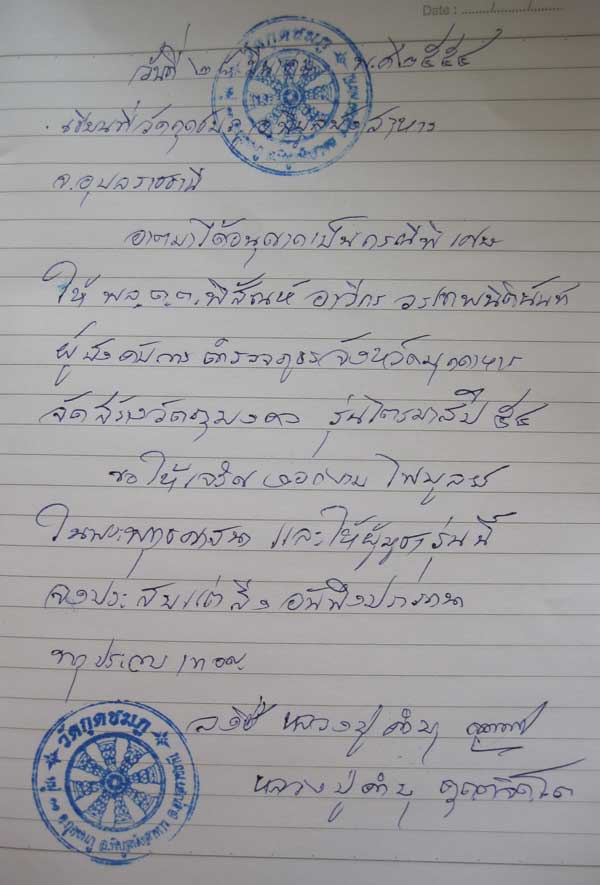 Date : ......../......../........
วันที่ ๒๘ มีนาคม พ.ศ ๒๕๕๔
เขียนที่วัดกุดชมภู อ.พิบูลมังสาหาร
จ.อุบลราชธานี
อาตมาได้อนุญาตเป็นกรณีพิเศษ
ให้ พล.ต.ต.พิสัณห์ อาวีกร วรเทพนิตินันท์
ผู้บังคับการตำรวจภูธรจังหวัดมุกดาหาร
จัดสร้างวัตถุมงคล รุ่นไตรมาสปี ๕๔
ขอให้เจริญงอกงาม ไพบูลย์
ในพระพุทธศาสนา และให้ผู้บูชารุ่นนี้
จงประสบแต่สิ่งอันพึงปรารถนา
ทุกประการ เทอญ
ลงชื่อ หลวงปู่คำบุ
หลวงปู่คำบุ คุตฺตจิตฺโต
วัดกุดชมภู